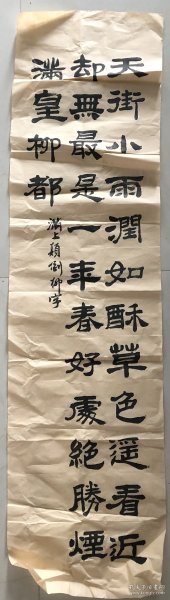 天街小雨潤如酥草色遥看近
却無最是一年春好處絕勝煙
滿皇柳都